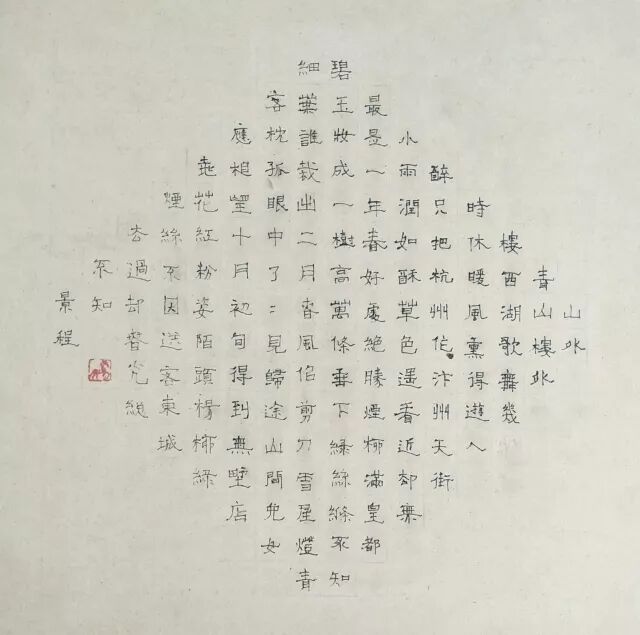 山外
青山樓外
樓西湖歌舞幾
時休暖風熏得遊人
醉只把杭州作汴州天街
小雨潤如酥草色遙看近却無
最是一年春好處絕勝煙柳滿皇都
碧玉妝成一樹高萬條垂下綠絲絛不知
細葉誰裁出二月春風似剪刀雪屋燈青
客枕孤眼中了〻見歸途山間兒女
應相望十月初旬得到無墅店
桃花紅粉姿陌頭楊柳綠
煙絲不因送客東城
去過却春光總
不知
景程